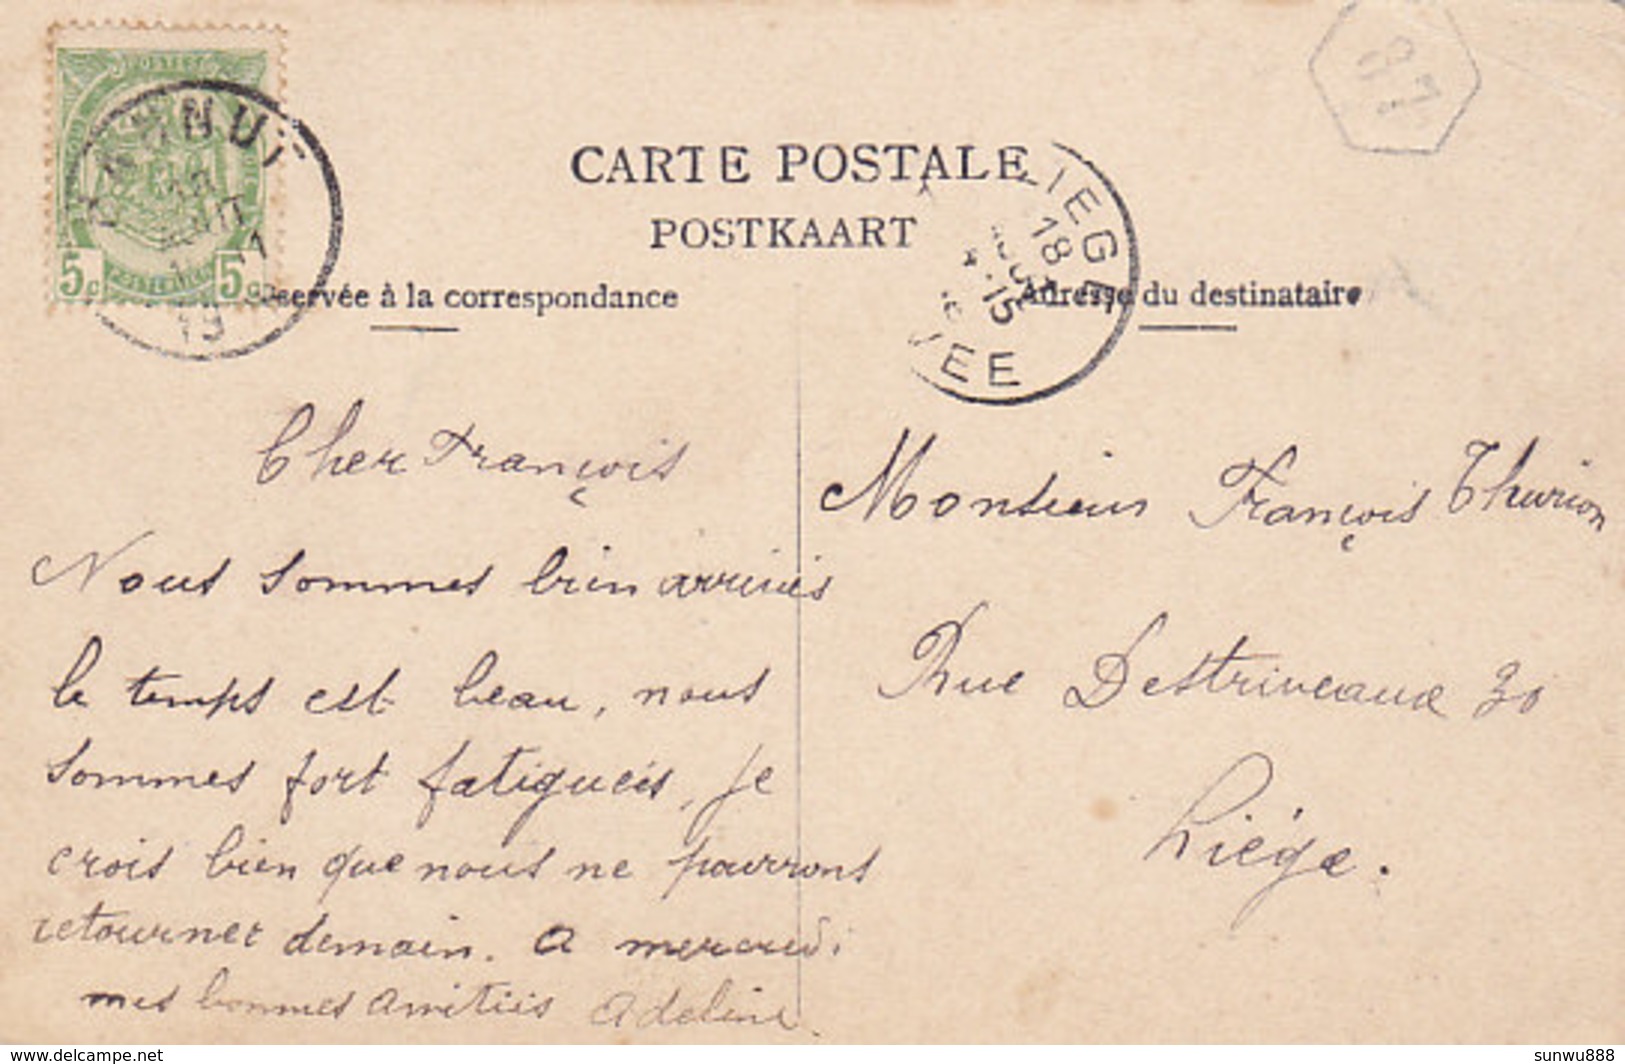 POSTES
5c 5c
HANNUT
18
AOUT
11
19
97
CARTE POSTALE
POSTKAART
LIEGE
18
15
VEE
servée à la correspondance
Adresse du destinataire
Cher François
Nous sommes bien arrivés
le temps est beau, nous
sommes fort fatiguées, je
crois bien que nous ne pourrons
retourner demain. A mercredi
mes bonnes amitiés Adeline
Monsieur François Thurion
Rue Destriveaux 30
Liége.
delcampe.net
sunwu888